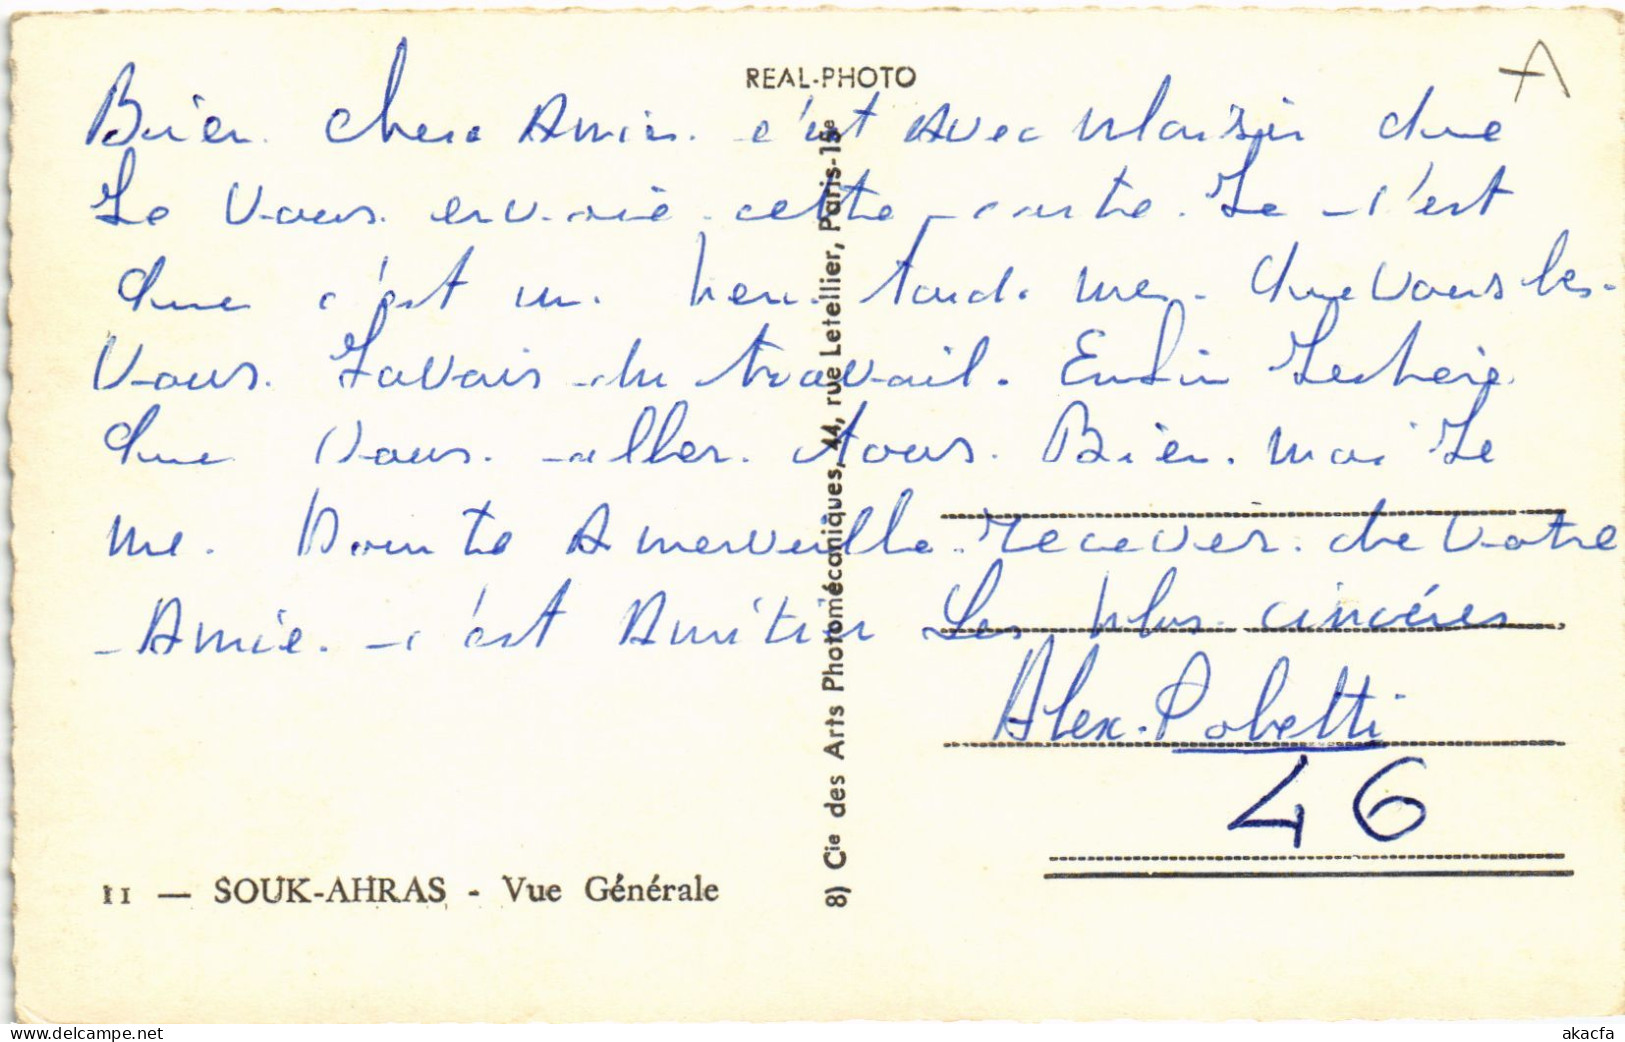 REAL-PHOTO
A
Bien chere Amie. c'est avec plaisir que
Je vous envoie cette carte. Je c'est
que c'est un peu tard. me que vous
vous Javais du travail. Enfin Jesbère
que vous aller tous. Bien. moi Je
me. Amerveille recever. de votre
Amie. c'est Amitier Les plus cincéres
Alex. Pobetti
46
11 — SOUK-AHRAS - Vue Générale
8) Cie des Arts Photomécaniques, 44, rue Letellier, Paris-15e
akacfa.delcampe.net
akacfa